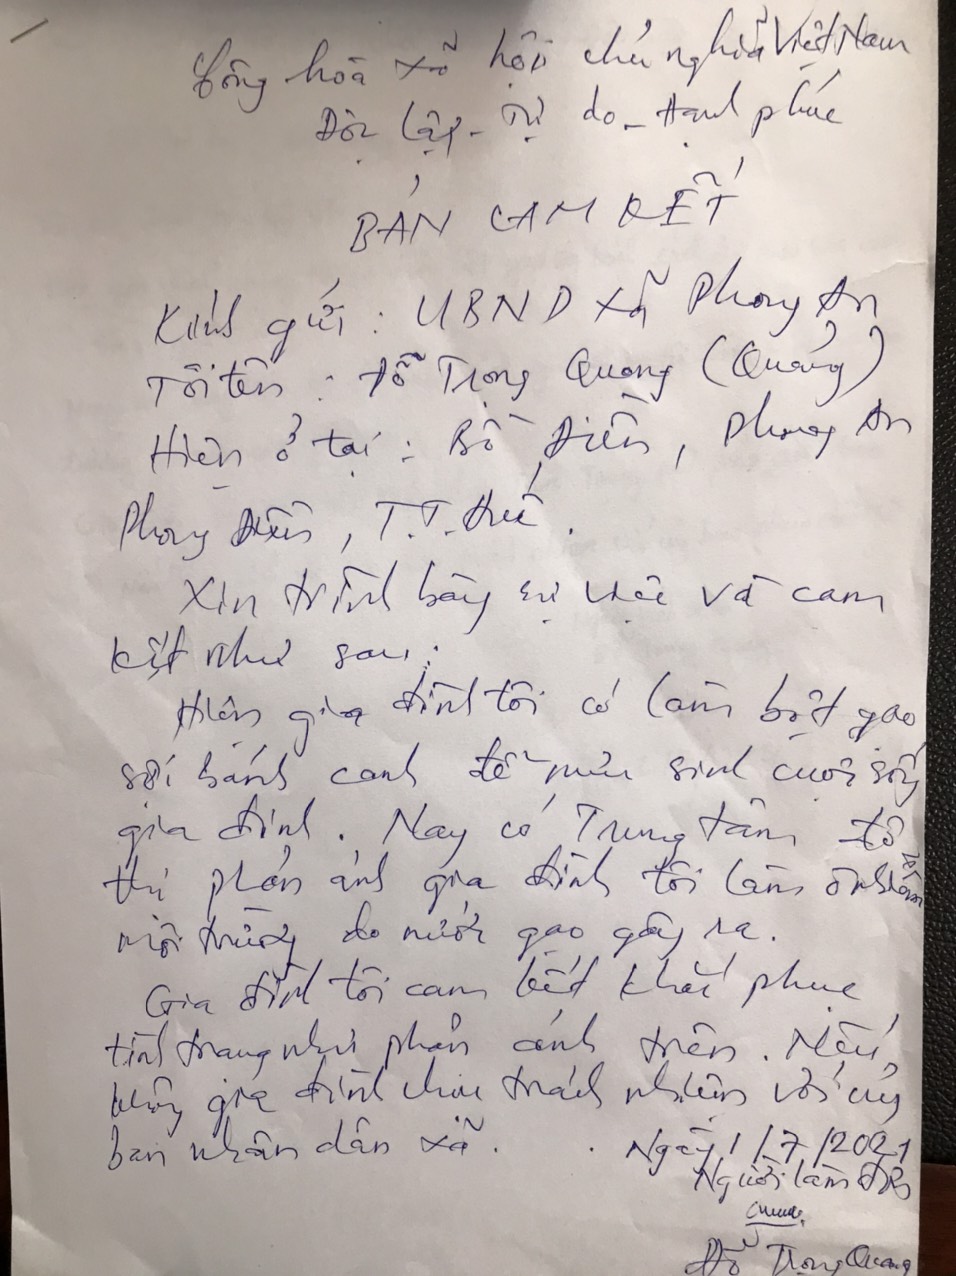 Cộng hoà xã hội chủ nghĩa Việt Nam
Độc lập - Tự do - Hạnh phúc
BẢN CAM KẾT
Kính gửi : UBND xã Phong An
Tôi tên : Đỗ Trọng Quang (Quảng)
Hiện ở tại : Bồ Điền, Phong An
Phong Điền, T.T. Huế.
Xin trình bày sự việc và cam
kết như sau:
Hiện gia đình tôi có làm bột gạo
sợi bánh canh để mưu sinh cuộc sống
gia đình. Nay có Trung tâm đô
thị phản ánh gia đình tôi làm ô nhiễm
môi trường do nước gạo gây ra.
Gia đình tôi cam kết khắc phục
tình trạng như phản ánh trên. Nếu
không gia đình chịu trách nhiệm với ủy
ban nhân dân xã.
Ngày 1/7/2021
Người làm đơn
Đỗ Trọng Quang